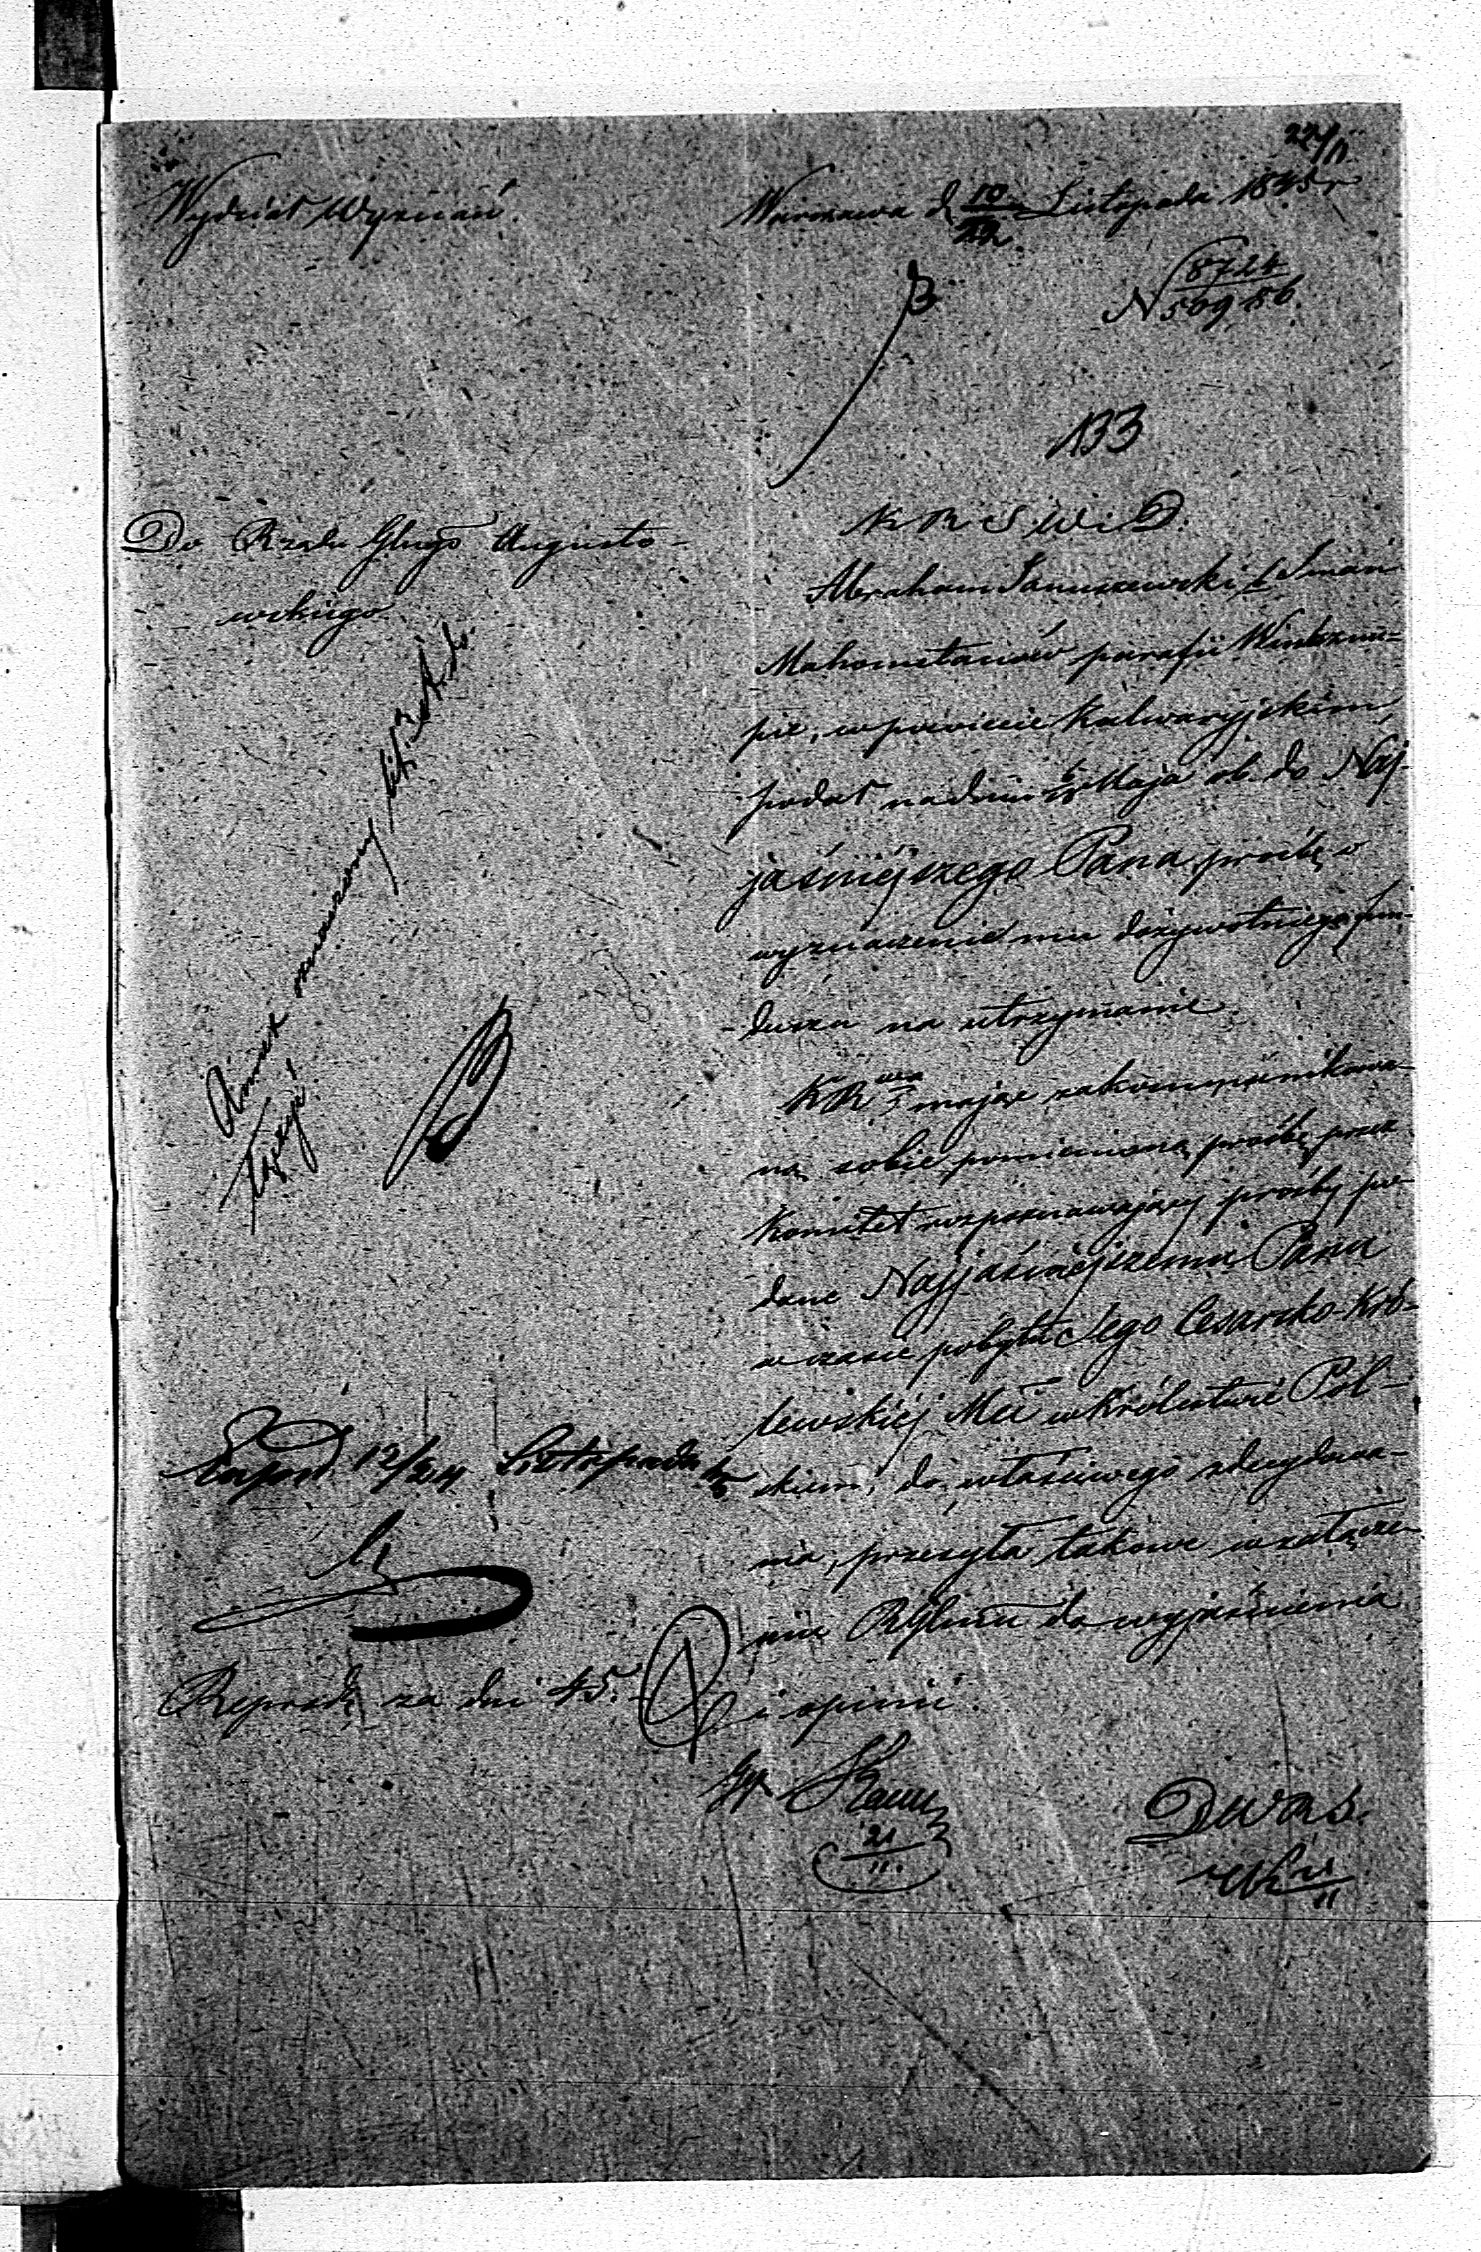 22/11
Wydział Wyznań.
Warszawa d 10/22 Listopada 1845 r
N 8724/509,86.
133
Do Rządu Glnego Augusto-
wskiego
K R S W i D.
Abraham Januszewski, Iman
Mahometanów parafii Winksznu-
pie, w powiecie Kalwaryjskim
podał na dniu Maja rb. do Naj-
jaśniejszego Pana prośbę o
wyznaczenie mu dożywotniego fun-
duszu na utrzymanie.
KR mając zakommunikowa-
ną sobie pomienioną prośbę przez
Komitet rozpoznawający prośby po-
dane Najjaśniejszemu Panu
w czasie pobytu Jego Cesarsko-Kró-
lewskiej Mci w Królestwie Pol-
skiem, do właściwego zdecydowa-
nia, przesyła takowe w załącze-
niu RGlnu do wyjaśnienia
i opinii.
Annex
Exped 12/24 Listopada
Reprod za dni 45.
21/11.